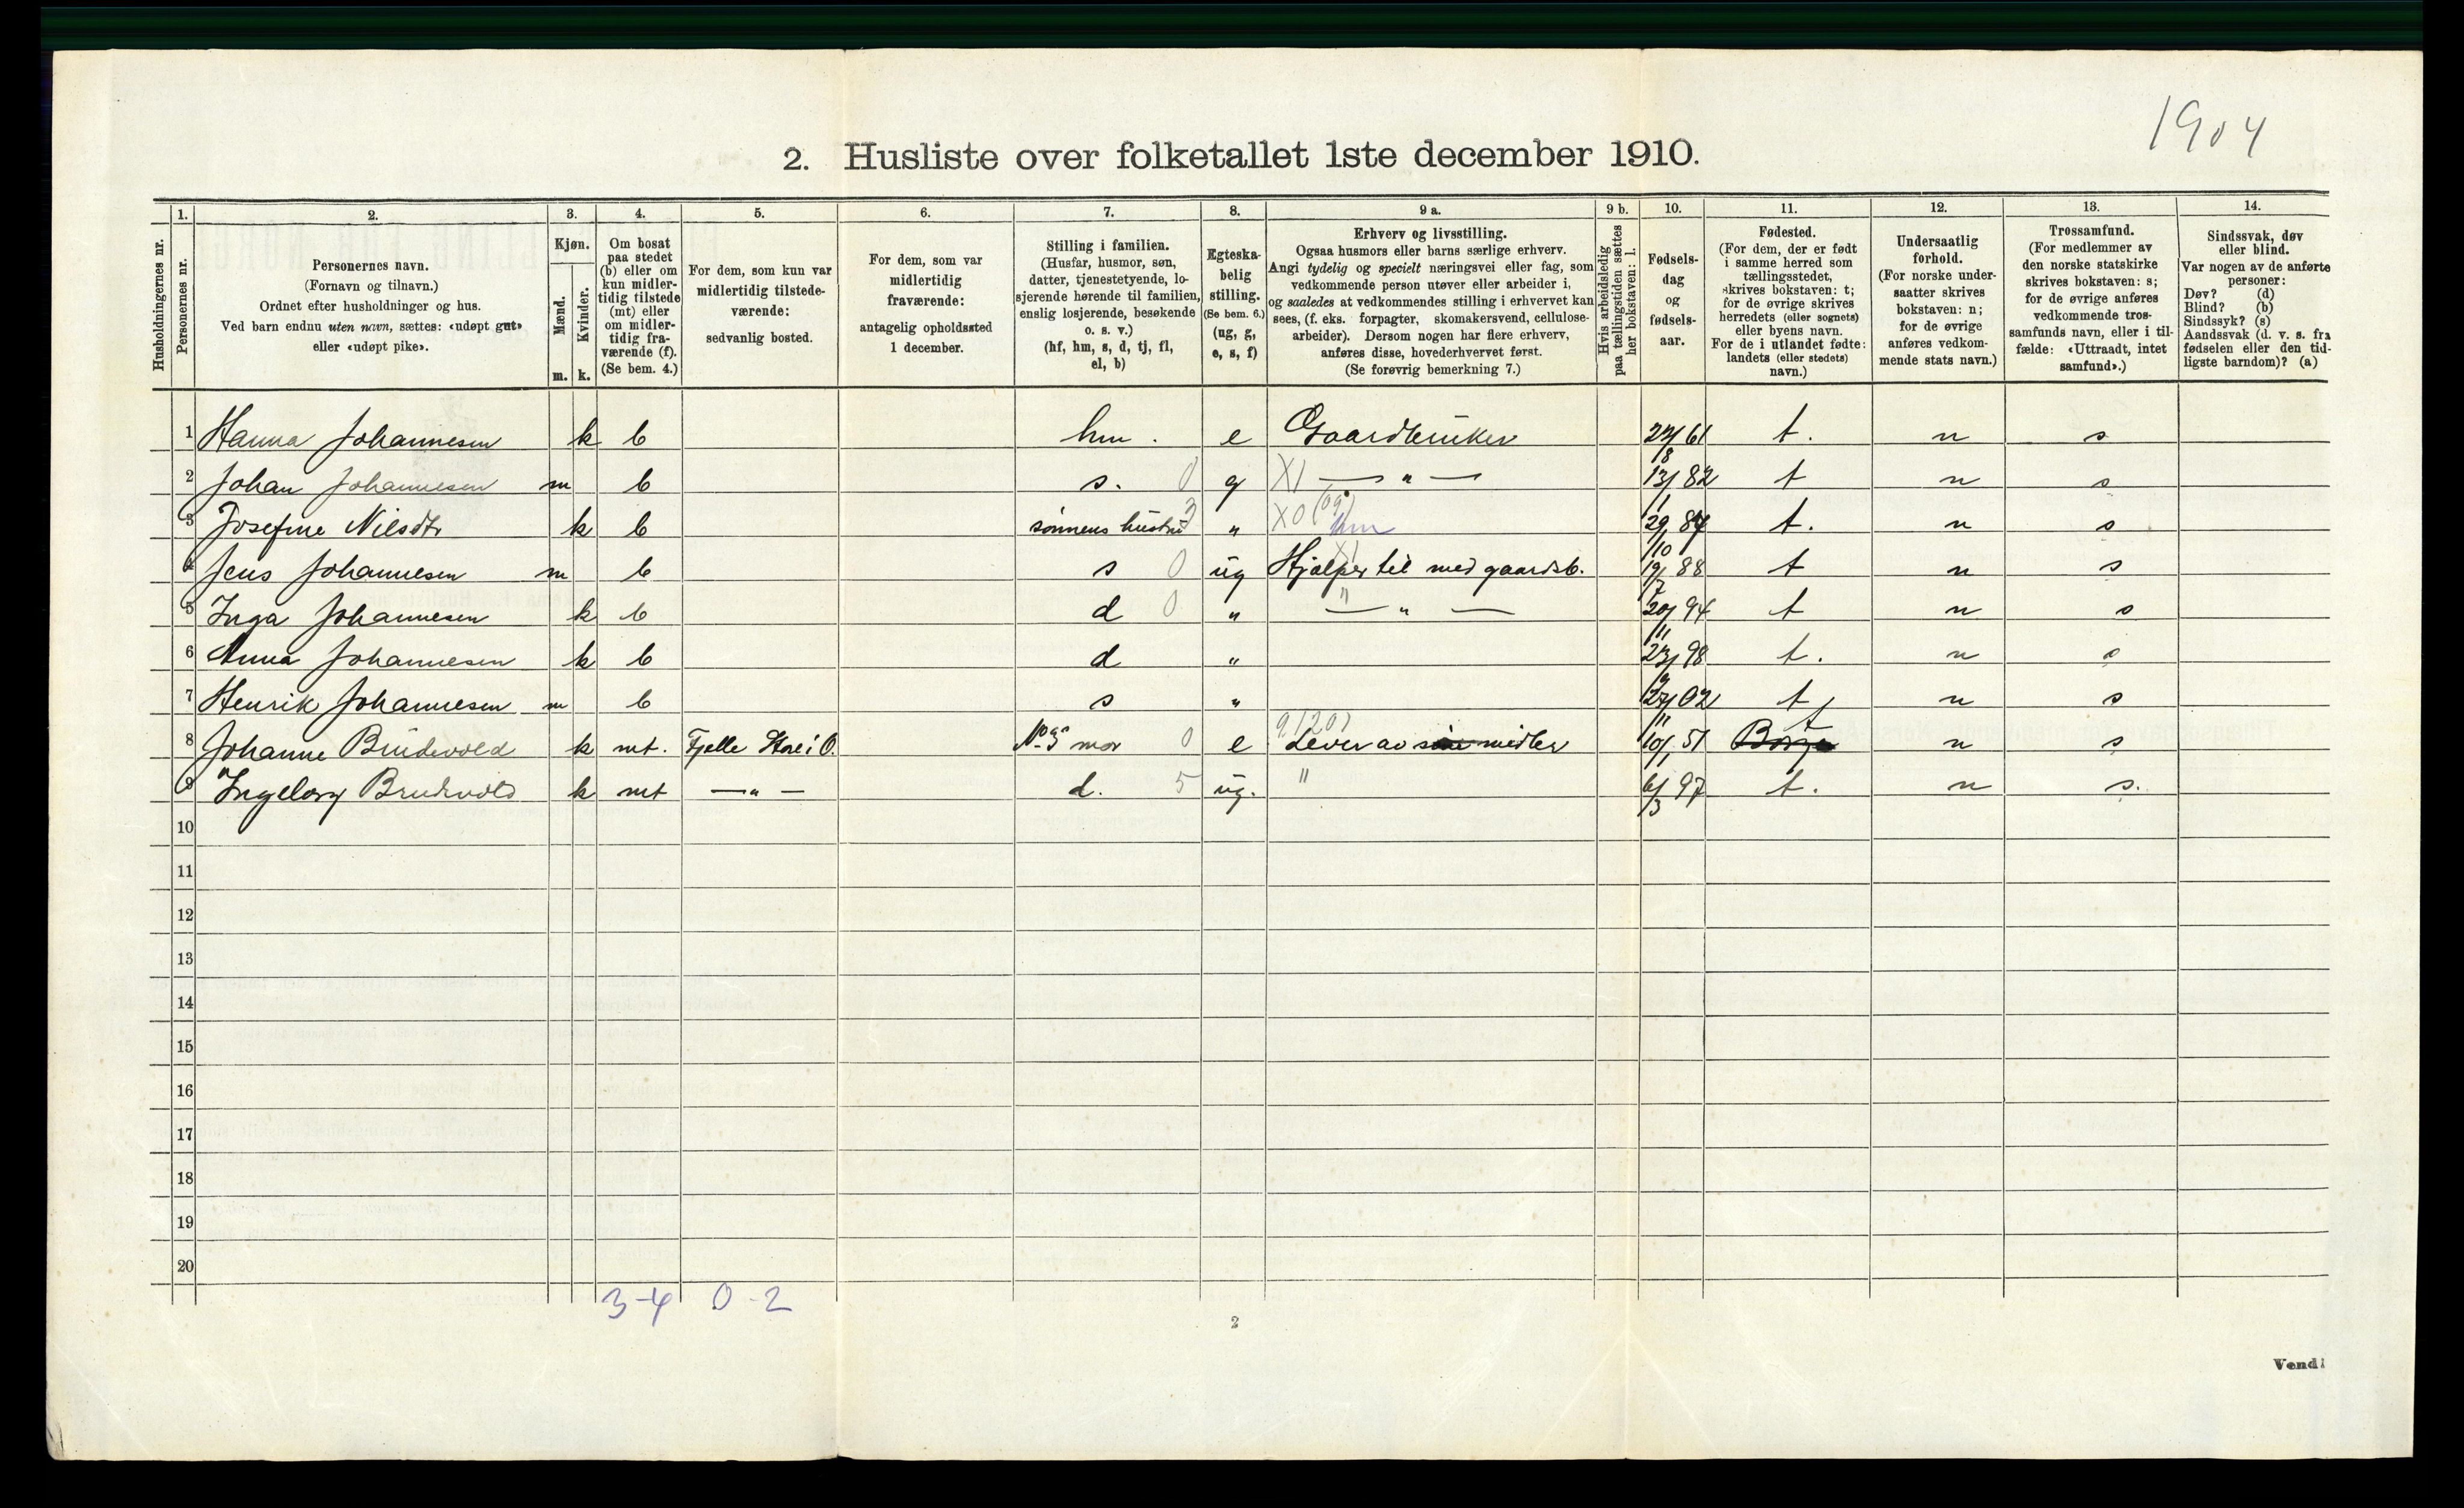 1904
2. Husliste over folketallet 1ste december 1910.
Husholdningernes nr.
1. Personernes nr.
2. Personernes navn. (Fornavn og tilnavn.) Ordnet efter husholdninger og hus. Ved barn endnu uten navn, sættes: «udøpt gut» eller «udøpt pike».
3. Kjøn. Mænd. m. Kvinder. k.
4. Om bosat paa stedet (b) eller om kun midlertidig tilstede (mt) eller om midlertidig fraværende (f). (Se bem. 4.)
5. For dem, som kun var midlertidig tilstedeværende: sedvanlig bosted.
6. For dem, som var midlertidig fraværende: antagelig opholdssted 1 december.
7. Stilling i familien. (Husfar, husmor, søn, datter, tjenestetyende, losjerende hørende til familien, enslig losjerende, besøkende o. s. v.) (hf, hm, s, d, tj, fl, el, b)
8. Egteskabelig stilling. (Se bem. 6.) (ug, g, e, s, f)
9 a. Erhverv og livsstilling. Ogsaa husmors eller barns særlige erhverv. Angi tydelig og specielt næringsvei eller fag, som vedkommende person utøver eller arbeider i, og saaledes at vedkommendes stilling i erhvervet kan sees, (f. eks. forpagter, skomakersvend, cellulosearbeider). Dersom nogen har flere erhverv, anføres disse, hovederhvervet først. (Se forøvrig bemerkning 7.)
9 b. Hvis arbeidsledig paa tællingstiden sættes her bokstaven: l.
10. Fødselsdag og fødselsaar.
11. Fødested. (For dem, der er født i samme herred som tællingsstedet, skrives bokstaven: t; for de øvrige skrives herredets (eller sognets) eller byens navn. For de i utlandet fødte: landets (eller stedets) navn.)
12. Undersaatlig forhold. (For norske undersaatter skrives bokstaven: n; for de øvrige anføres vedkommende stats navn.)
13. Trossamfund. (For medlemmer av den norske statskirke skrives bokstaven: s; for de øvrige anføres vedkommende trossamfunds navn, eller i tilfælde: «Uttraadt, intet samfund».)
14. Sindssvak, døv eller blind. Var nogen av de anførte personer: Døv? (d) Blind? (b) Sindssyk? (s) Aandssvak (d. v. s. fra fødselen eller den tidligste barndom)? (a)
1 Hanna Johannesen k b hm. e Gaardbruker 61 t. n s
2 Johan Johannesen m b s. 0 g XI — " — 13/1 82 t n s
3 Josefine Nilsdtr k b sønnens hustru 3 " XO (09) hm 29/10 84 t. n s
4 Jens Johannesen m b s 0 ug Hjælper til med gaardsb. XI 19/7 88 t n s
5 Inga Johannesen k b d 0 " — " — " 20/11 94 t n s
6 Anna Johannesen k b d " 23/9 98 t. n s
7 Henrik Johannesen m b s " 27/11 02 t n s
8 Johanne Brudevold k mt. Fjelle Store i Ø. No 3s mor 0 e Lever av sine midler 9120) 10/1 51 t n s
9 Ingeborg Brudevold k mt — " — d. 5 ug. " 6/3 97 t. n s.
10
11
12
13
14
15
16
17
18
19
20
3-4 0-2
2
Vend!